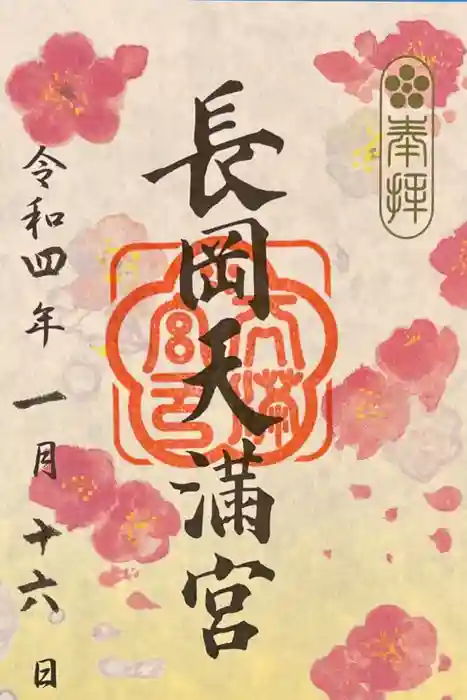 奉拝
長岡天満宮
天満宮印
令和四年一月十六日